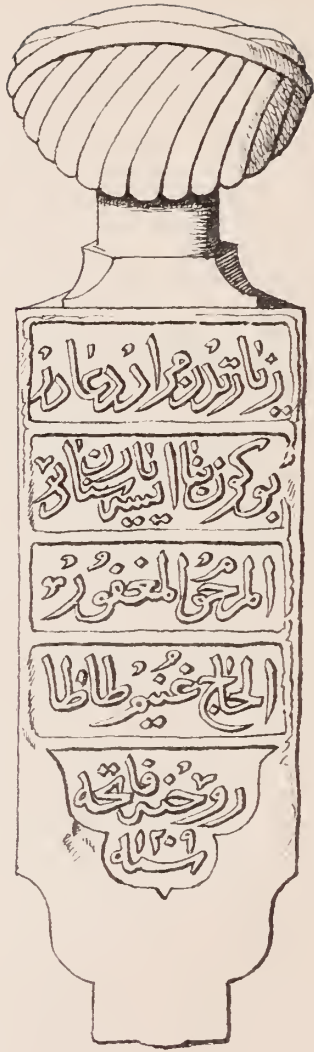 زيارتدن مراد دعادر
بوكون بنا ايسه يارن سنادر
المرحوم المغفور
الحاج غنيم طاظا
روحنه فاتحه
سنه ١٢٠٩